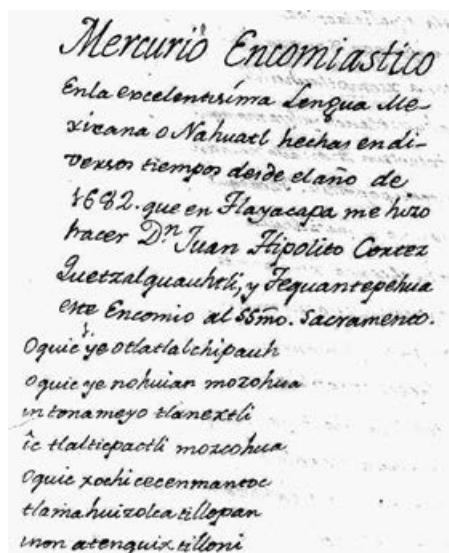 Mercurio Encomiastico
Enla excelentisíma Lengua Me-
xicana o Nahuatl hechas en di-
versos tiempos desde el año de
1682. que en Tlayacapa me hizo
hacer Dn. Juan Hipolito Cortez
Quetzalquauhtli, y Tequantepehua
este Encomio al SSmo. Sacramento.
1.
Oquic ye otlatlalchipauh
oquic ye nohuian mozohua
in tonameyo tlanextli
ic tlalticpactli mozcohua
Oquic xochicecenmantoc
tlamahuizolcatillopan
inon atenquixtilloni